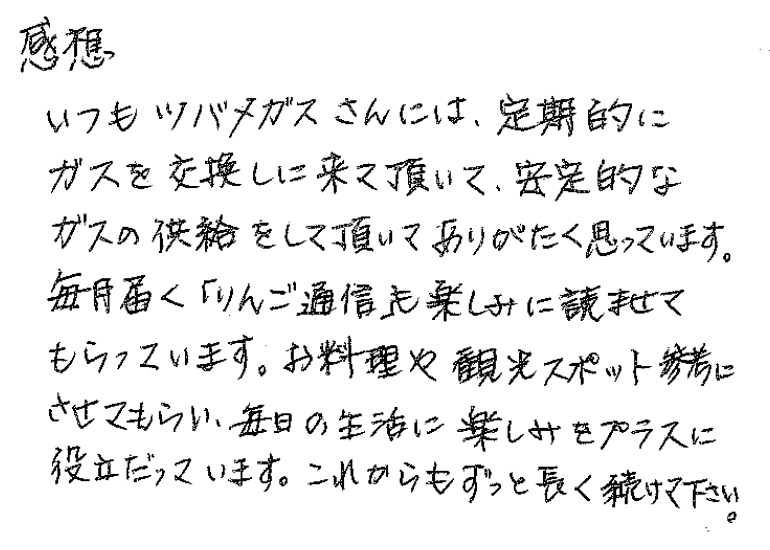 感想
いつもツバメガスさんには、定期的に
ガスを交換しに来て頂いて、安定的な
ガスの供給をして頂いてありがたく思っています。
毎月届く「りんご通信」も楽しみに読ませて
もらっています。お料理や観光スポット参考に
させてもらい、毎日の生活に楽しみをプラスに
役立だっています。これからもずっと長く続けて下さい。